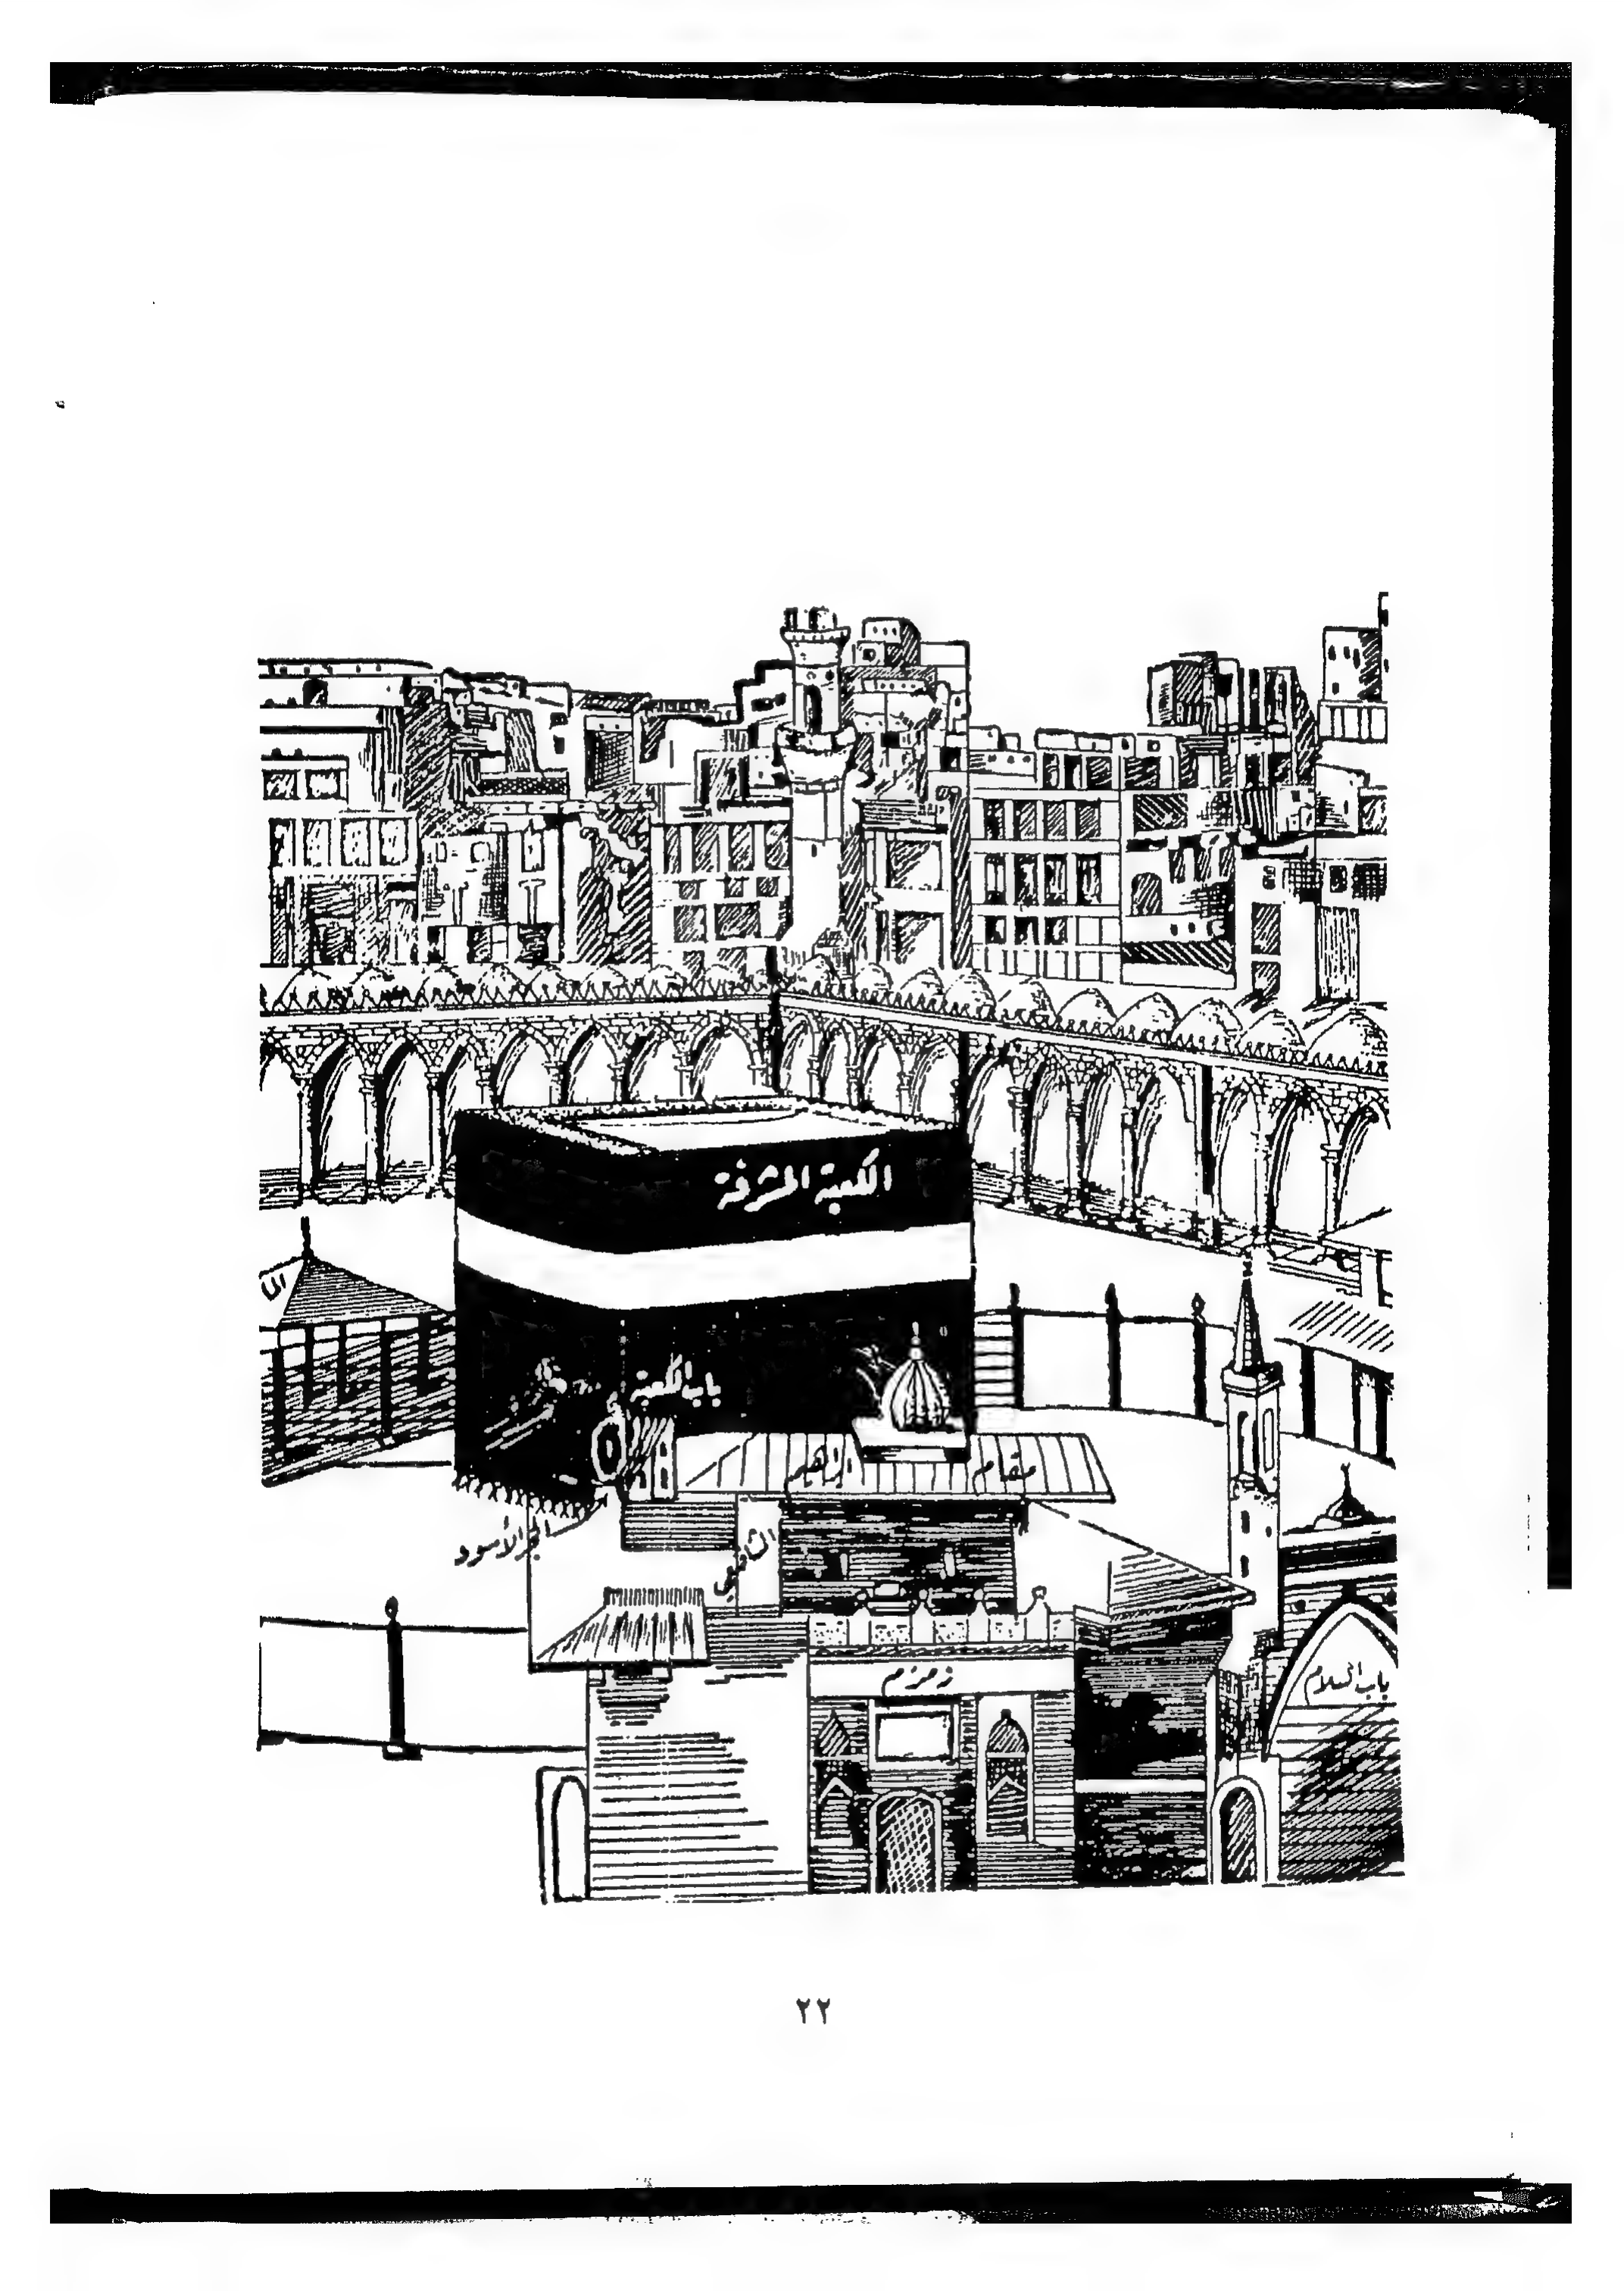 الكعبة المشرفة
باب الكعبة
مقام إبراهيم
الحجر الأسود
الشافعي
زمزم
باب السلام
٢٢